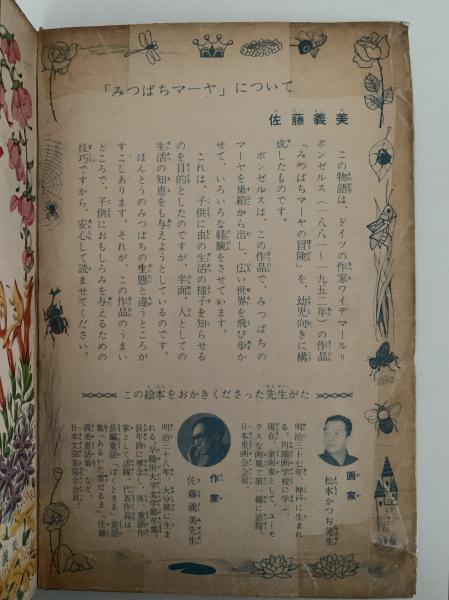 「みつばちマーヤ」について
佐藤義美
この物語は、ドイツの作家ワイデマール＝
ボンゼルス（一八八一～一九五二年）の作品
「みつばちマーヤの冒険」を、幼児向きに構
成したものです。
ボンゼルスは、この作品で、みつばちの
マーヤを巣箱から出し、広い世界を飛び歩か
せて、いろいろな経験をさせています。
これは、子供に虫の生活の様子を知らせる
のを目的としたのですが、半面、人としての
生活の知恵をも与えようとしているのです。
ほんとうのみつばちの生態と違うところが
すこしあります。それが、この作品のうまい
ところで、子供におもしろみを与えるための
技巧ですから、安心して読ませてください。
この絵本をおかきくださった先生がた
画家
松本かつぢ先生
明治三十七年、神戸に生まれ
る。川端画学校に学ぶ。
現在、童画家として、ユーモ
ラスな画風で第一線に活躍。
日本童画会会員。
作家
佐藤義美先生
明治三十八年、大分県に生ま
れる。早稲田大学文学部卒業。
長年詩に専念
家として活躍。代表作品は
長編童話「ぼくとはる」童話
集「あるいた雪だるま」、佐藤
義美童話集」など。
日本文芸家協会会員。